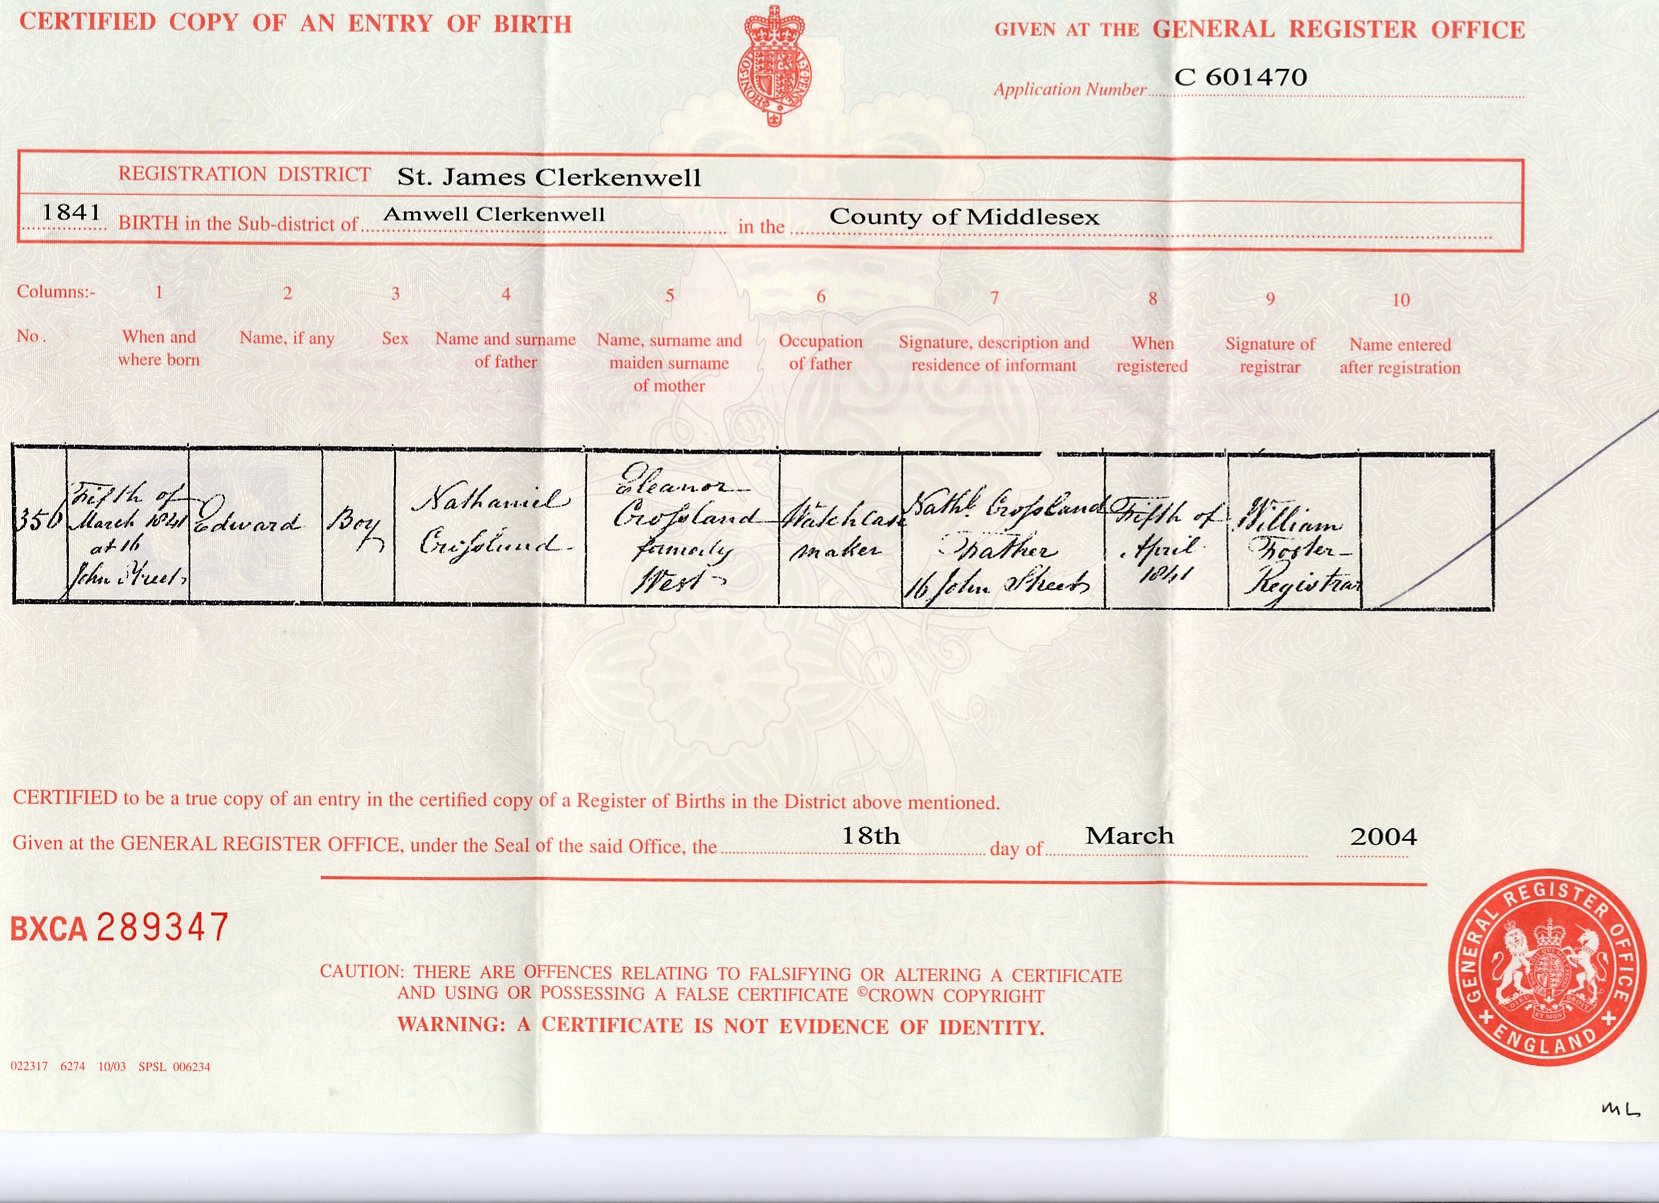 CERTIFIED COPY OF AN ENTRY OF BIRTH
GIVEN AT THE GENERAL REGISTER OFFICE
Application Number C 601470
REGISTRATION DISTRICT St. James Clerkenwell
1841 BIRTH in the Sub-district of Amwell Clerkenwell in the County of Middlesex
Columns:- 1 2 3 4 5 6 7 8 9 10
No. When and where born
Name, if any
Sex
Name and surname of father
Name, surname and maiden surname of mother
Occupation of father
Signature, description and residence of informant
When registered
Signature of registrar
Name entered after registration
350
Fifth of
March 1841
at 16
John Street
Edward
Boy
Nathaniel
Crossland
Eleanor
Crossland
formerly
West
Watch case
maker
Nathl Crossland
Father
16 John Street
Fifth of
April
1841
William
Foster
Registrar
CERTIFIED to be a true copy of an entry in the certified copy of a Register of Births in the District above mentioned.
Given at the GENERAL REGISTER OFFICE, under the Seal of the said Office, the 18th day of March 2004
BXCA 289347
CAUTION: THERE ARE OFFENCES RELATING TO FALSIFYING OR ALTERING A CERTIFICATE
AND USING OR POSSESSING A FALSE CERTIFICATE ©CROWN COPYRIGHT
WARNING: A CERTIFICATE IS NOT EVIDENCE OF IDENTITY.
GENERAL REGISTER OFFICE
ENGLAND
022317 6274 10/03 SPSL 006234
ML